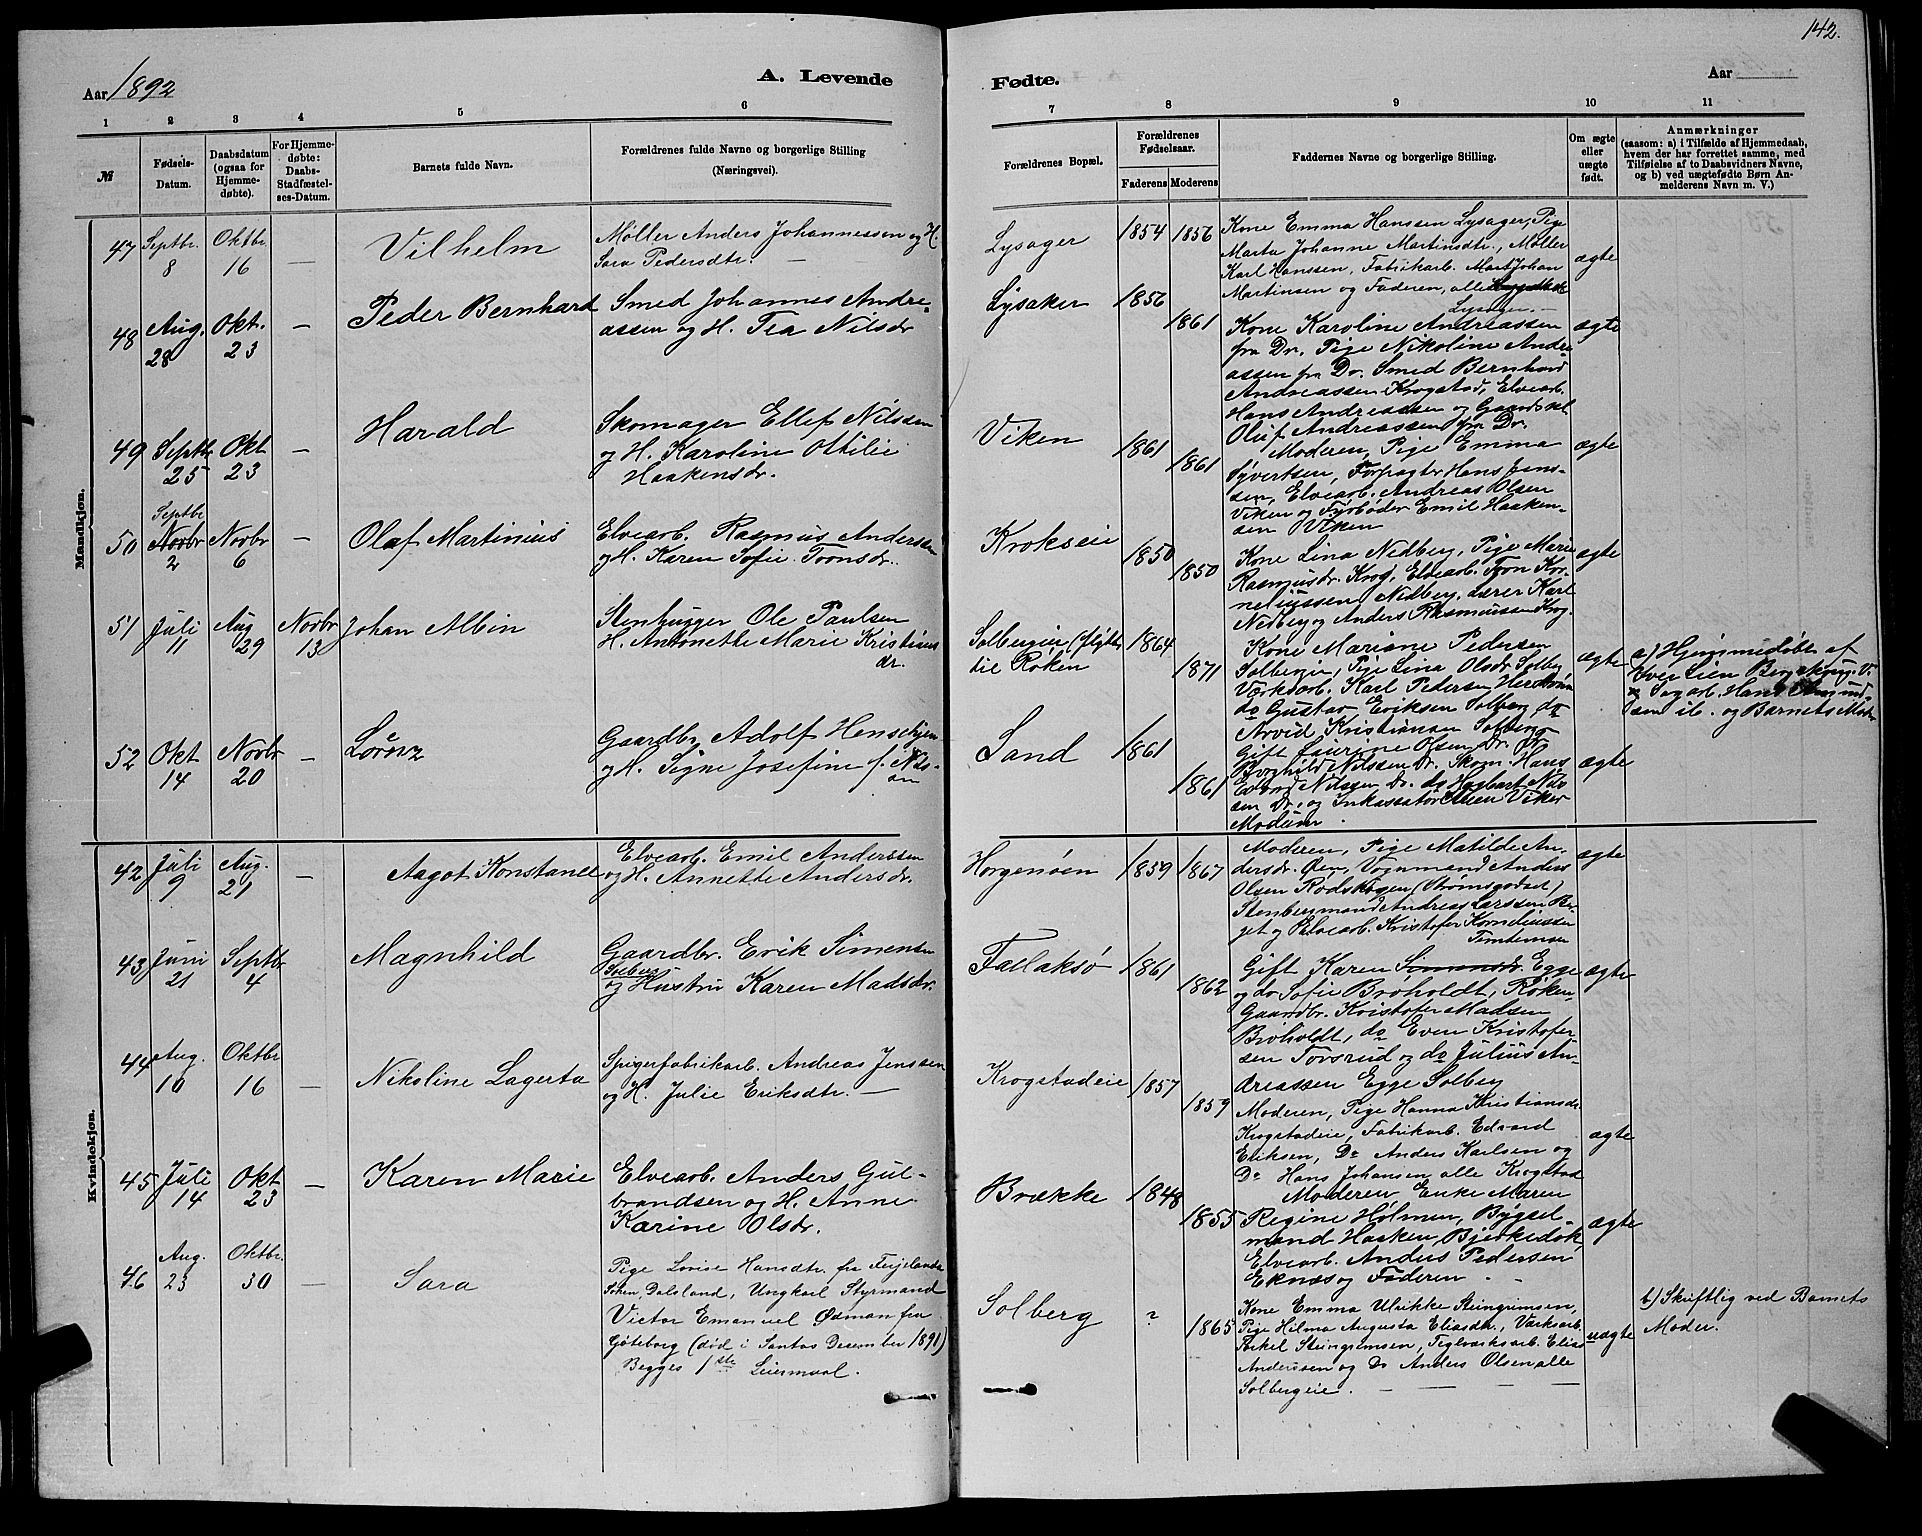 142.
Aar 1892
A. Levende
Fødte.
Aar
1 2 3 4 5 6
7 8 9 10 11
№
Fødsels-
Datum.
Daabsdatum
(ogsaa for
Hjemme-
døbte).
For Hjemme-
døbte:
Daabs-
Stadfæstel-
ses-Datum.
Barnets fulde Navn.
Forældrenes fulde Navne og borgerlige Stilling
(Næringsvei).
Forældrenes Bopæl.
Forældrenes
Fødselsaar.
Faderens Moderens
Faddernes Navne og borgerlige Stilling.
Om ægte
eller
uægte
født.
Anmærkninger
(saasom: a) i Tilfælde af Hjemmedaab,
hvem der har forrettet samme, med
Tilføielse af to Daabsvidners Navne,
og b) ved uægtefødte Børn An-
melderens Navn m. V.)
Mandkjøn.
47 Septbr. 8
Oktbr. 16
—
Vilhelm
Møller Anders Johannessen og H.
Sara Pedersdtr.
Lysager
1854 1856
Kone Emma Hanssen Lysager, Pige
Marta Johanne Martinsdtr., Møller
Karl Hanssen, Fabrikarb. Mart Johan
Martinsen og Faderen, alle
Lysager.
ægte
48 Aug. 28
Okt. 23
—
Peder Bernhard
Smed Johannes Andre-
assen og H. Tea Nilsdr
Lysaker
1856 1861
Kone Karoline Andreassen
fra Dr. Pige Nikoline Andre-
assen fra Dr. Smed Bernhard
Andreassen Krogstad, Elvearb.
Hans Andreassen og Gaardskl.
Oluf Andreassen fra Dr.
ægte
49 Septbr 25
Okt 23
—
Harald
Skomager Ellef Nilssen
og H. Karoline Ottilie
Haakensdr.
Viken
1861 1861
Moderen, Pige Emma
Syvertsen, Forpagter Hans Jens-
sen, Elvearb. Andreas Olsen
Viken og Fyrbøder Emil Haaken-
sen Viken
ægte
50 Septbr Novbr 2
Novbr 6
—
Olaf Martinius
Elvearb. Rasmus Anderssen
og H. Karen Sofie Tronsdr.
Krokseie
1850 1850
Kone Lina Nedberg, Pige Marie
Rasmusdr. Krog, Elvearb. Tron Kor-
neliussen Nedberg, Lærer Karl
Nedberg og Anders Rasmussen Krog.
ægte
51 Juli 11
Aug 29
Novbr 13
Johan Albin
Stenhugger Ole Paulsen
H. Antonette Marie Kristians
dr.
Solbergeie (flyttet
til Røken
1864 1871
Kone Mariane Pedersen
Solbergeie, Pige Lina Olsdr Solberg
Værksarb. Karl Pedersen
do Gustav Eriksen Solberg, do
Arvid Kristiansen Solberg
ægte
a) Hjemmedøbt af
Iver Lien
Sagarb. Hans Amund-
sen ib. og Barnets Moder
52 Okt 14
Novbr 20
—
Lørnz
Gaardbr. Adolf Hensehjem
og H. Signe Josefine f. Nils-
sen
Sand
1861 1861
Gift Laurine Olsen Dr. Fr.
Borghild Nilssen Dr. Skom. Hans
Edvard Nilssen Dr. do Hagbart Nils
sen Dr. og Inkassator Viker
Modum.
ægte
Kvindekjøn.
42 Juli 9
Aug. 21
—
Aagot Konstance
Elvearb. Emil Anderssen
og H. Annette Andersdr.
Horgenøen
1859 1867
Moderen, Pige Matilde An-
dersdr. Øen, Vognmand Anders
Olsen Rødskogen (Strømsgodset)
Stenbergmand Andreas Larssen Ber-
get og Elvearb. Kristofer Korneliussen
Temteman
ægte
43 Juni 21
Septbr 4
Magnhild
Gaardbr. Erik Simensen
og Hustru Karen Madsdr.
Fallaksø
1861 1862
Gift Karen Simensdr. Egge
og do Sofie Broholdt, Røken,
Gaardbr. Kristofer Madsen
Broholdt, do Even Kristofer-
sen Torsrud og do Julius An-
dreassen Egge Solberg
ægte
44 Aug. 10
Oktbr 16
—
Nikoline Lagerta
Spigerfabrikarb. Andreas Jenssen
og H. Julie Eriksdtr. —
Krogstadeie
1857 1859
Moderen, Pige Hanna Kristiansdr
Krogstadeie, Fabrikarb. Edvard
Eriksen, Do Anders Karlsen og
Do Hans Johansen alle Krogstad
ægte
45 Juli 14
Okt 23
—
Karen Marie
Elvearb. Anders Gul-
brandsen og H. Anne
Karine Olsdr.
Brække
1848 1855
Moderen, Enke Maren
Regine Holmen, Bygsel-
mand Haaken Bjerkedok,
Elvearb. Anders Pedersen
Eknæs og Faderen
ægte
46 Aug. 23
Oktbr. 30
—
Sara
Pige Lovise Hansdtr. fra
Soken, Dalsland, Ungkarl Styrmand
Victor Emanuel Ødman fra
Gøteborg (død i Santos Desember 1891)
Begges 1ste Leiermaal.
Solberg
? 1865
Kone Emma Ulrikke Steingrimsen,
Pige Hilma Augusta Eliasdtr, Værksarb.
Torkel Steingrimsen, Teglværksarb. Elias
Anderssen og Do Anders Olsen alle
Solbergeie.
uægte
b) Skriftlig ved Barnets
Moder.